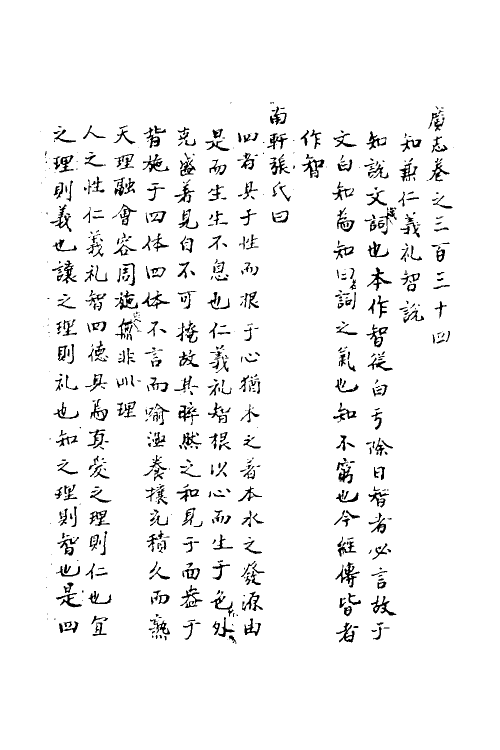 廣志卷之三百三十四
知兼仁義礼智說
知說文詞也本作智從白亏除曰智者必言故于
文白知為知曰詞之氣也知不窮也今經傳皆者
作智
南軒張氏曰
四者具于性而根于心猶木之着本水之發源由
是而生生不息也仁義礼智根以心而生于色外
充盛著見自不可掩故其睟然之和見于面盎于
背施于四体四体不言而喻涵養擴充積久而熟
天理融會容周施無非此理
人之性仁義礼智四德具焉真愛之理則仁也宜
之理則義也讓之理則礼也知之理則智也是四